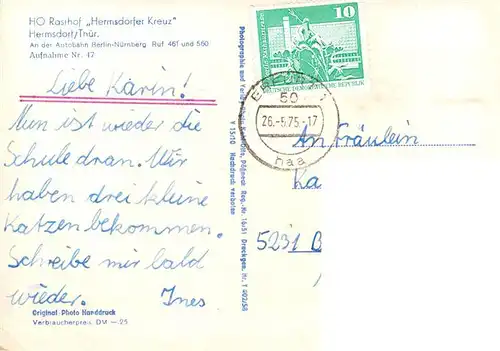 HO Rasthof „Hermsdorfer Kreuz"
Hermsdorf/Thür.
An der Autobahn Berlin-Nürnberg Ruf 461 und 560
Aufnahme Nr. 47
Liebe Karin!
Nun ist wieder die
Schule dran. Wir
haben drei kleine
Katzen bekommen.
Schreibe mir bald
wieder. Ines
Original-Photo Handdruck
Verbraucherpreis DM -.25
Photographie und
Pößneck Reg.-Nr. 16/51 Druckgen. Nr. T 602/58
V 15/10 Nachdruck verboten
10
DEUTSCHE DEMOKRATISCHE REPUBLIK
50
26.-5.75-17
haa
An Fräulein
Ka
5231 B